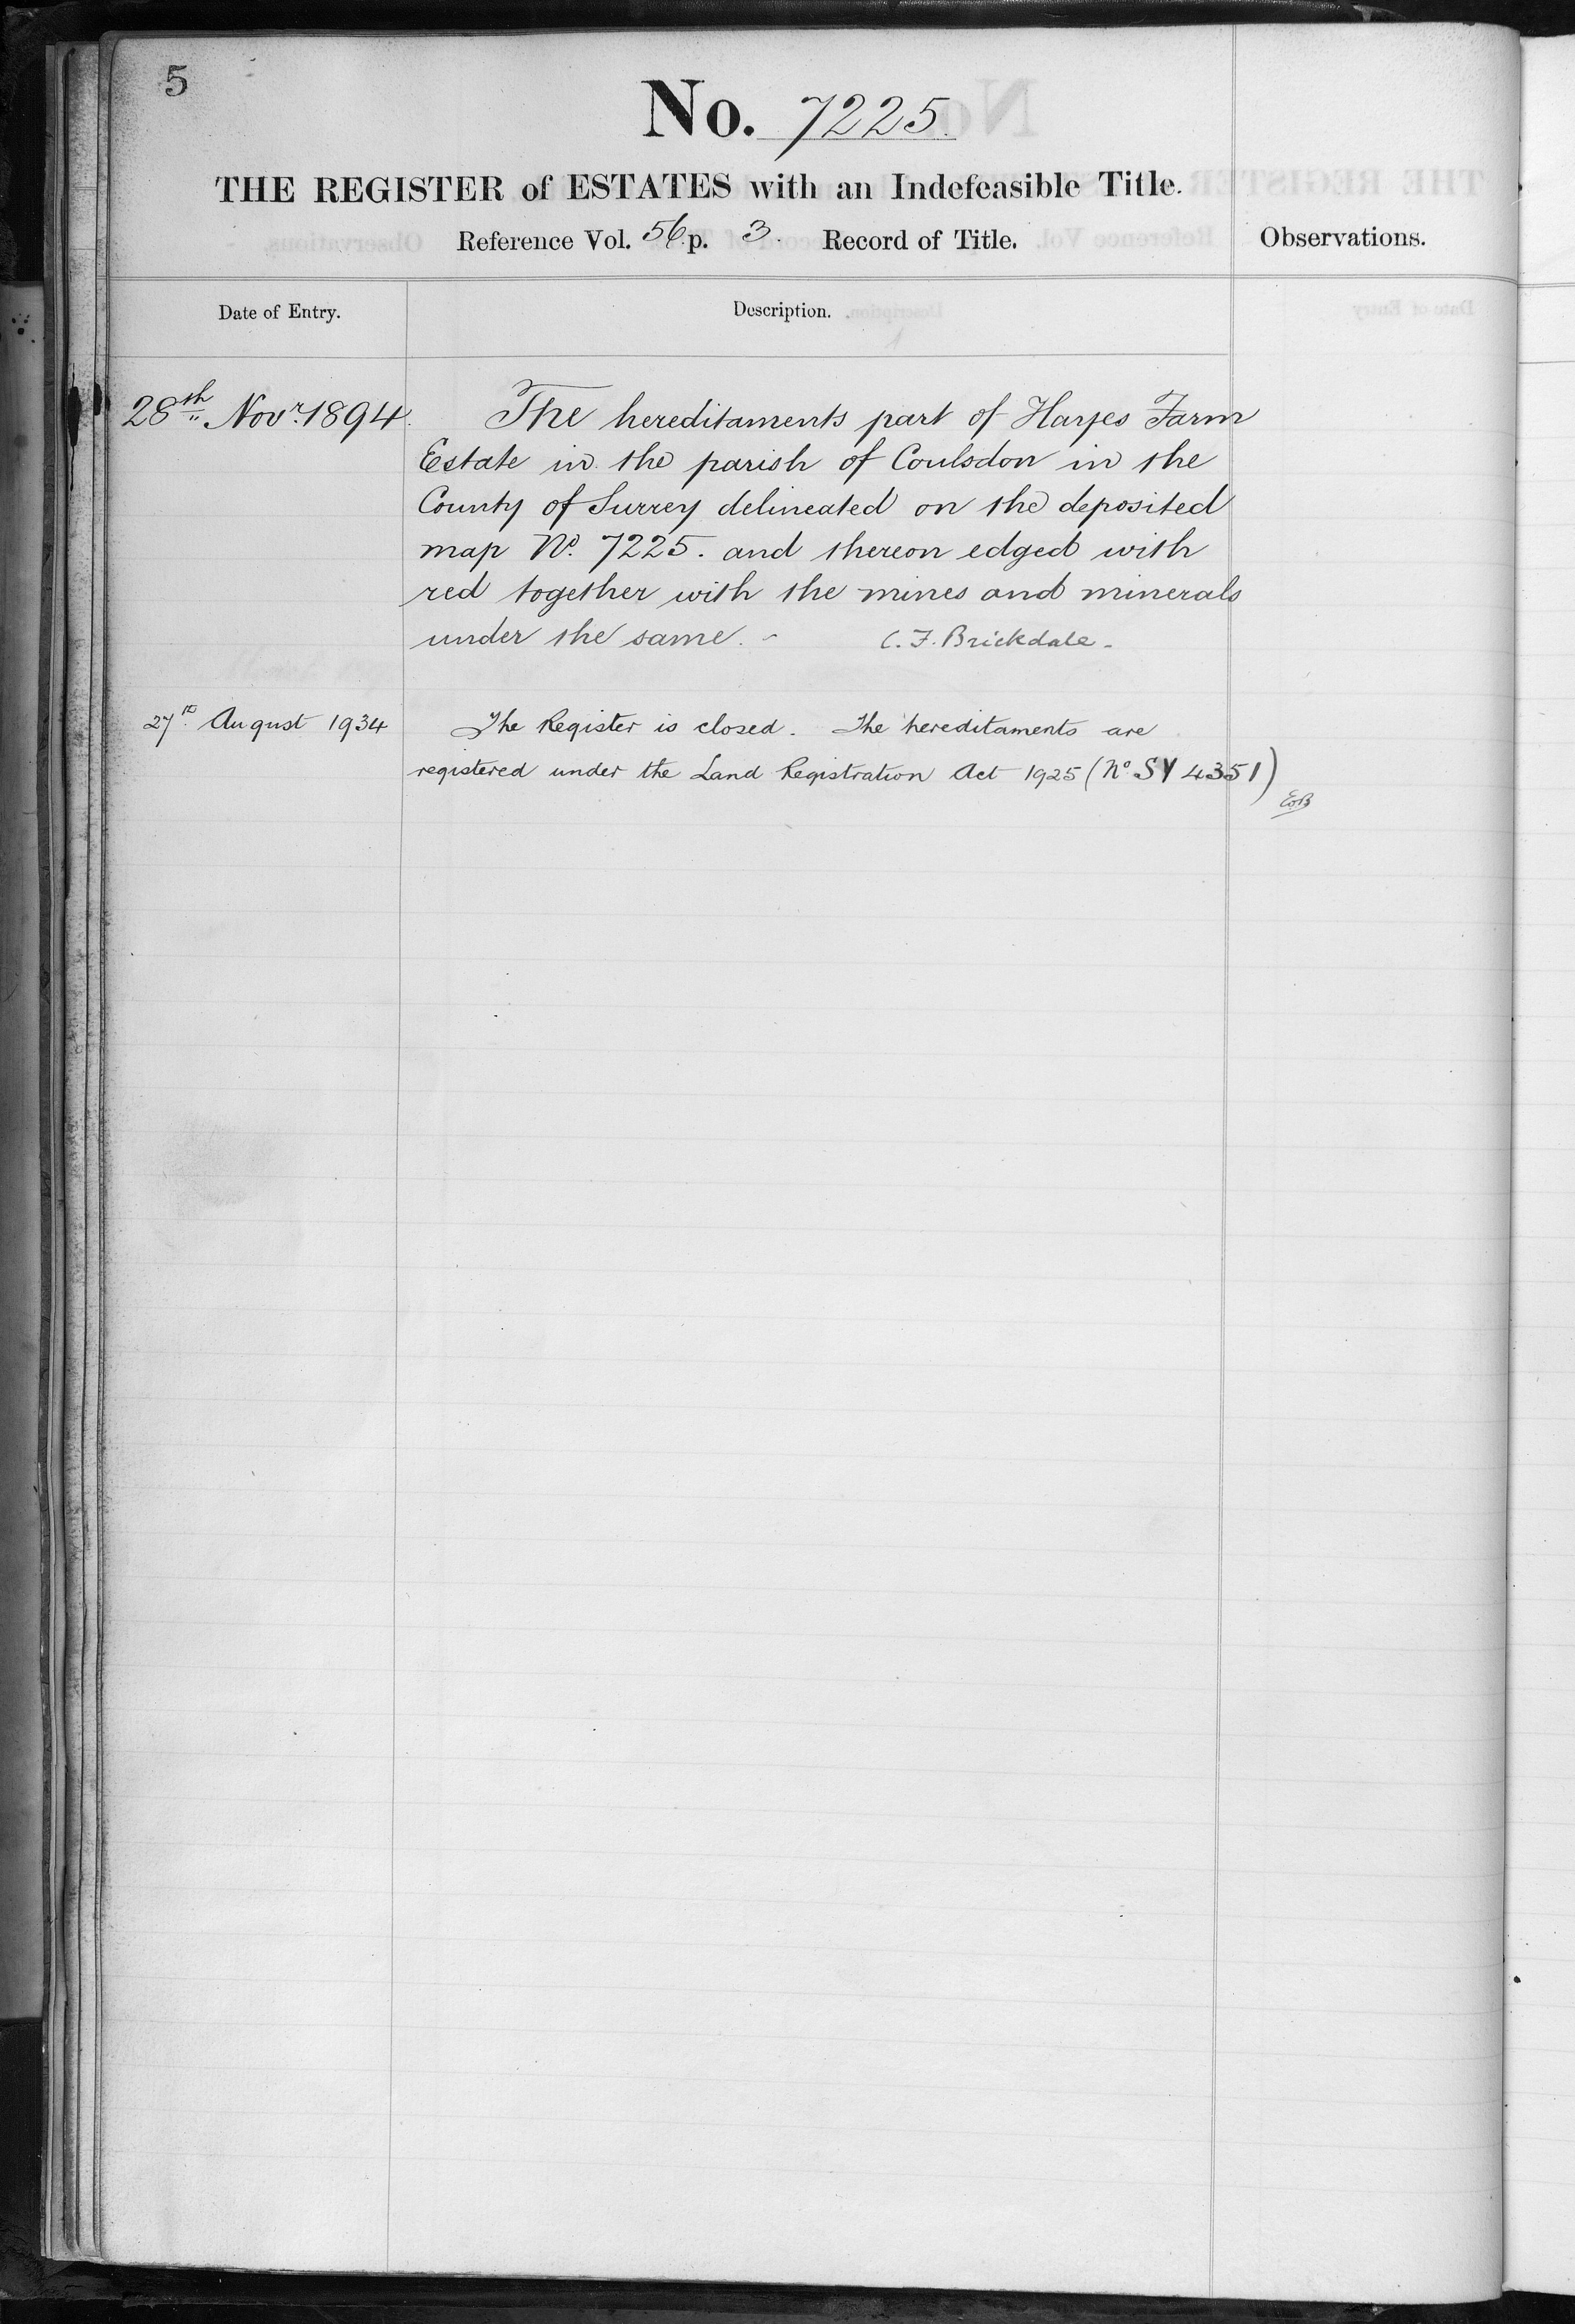 5
No. 7225.
THE REGISTER of ESTATES with an Indefeasible Title.
Reference Vol. 56 p. 3. Record of Title.
Observations.
Date of Entry.
Description.
28th Novr. 1894.
The hereditaments part of Hayes Farm
Estate in the parish of Coulsdon in the
County of Surrey delineated on the deposited
map No. 7225. and thereon edged with
red together with the mines and minerals
under the same. - C. F. Brickdale -
27th August 1934
The Register is closed. The hereditaments are
registered under the Land Registration Act 1925 (No. SY 4351)